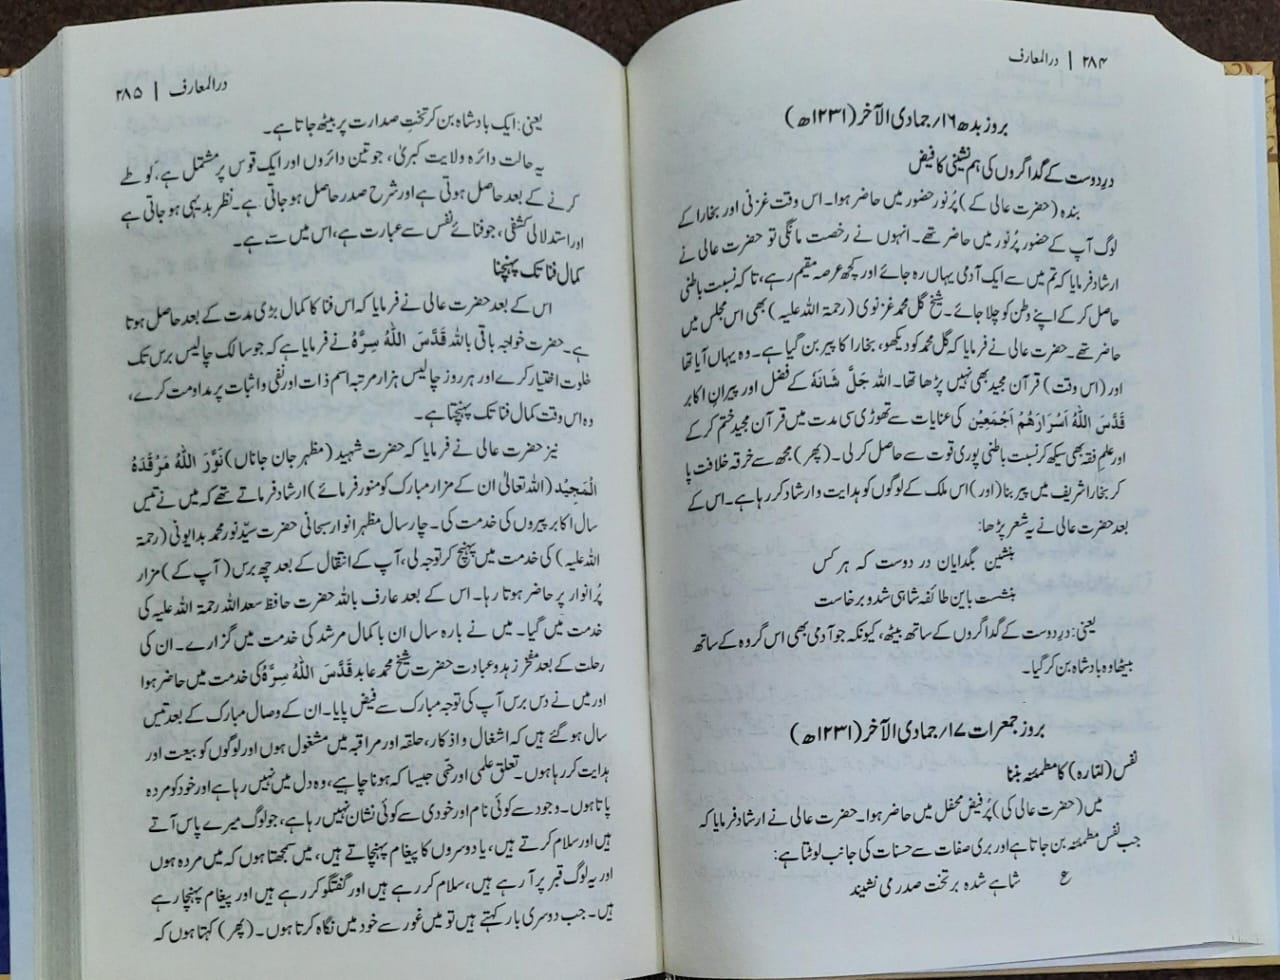 ۲۸۴ | درالمعارف
بروز بدھ ۱۶/ جمادی الآخر (۱۲۳۱ھ)
درِ دوست کے گداگروں کی ہم نشینی کا فیض
بندہ (حضرت عالی کے) پُرنور حضور میں حاضر ہوا۔ اس وقت غزنی اور بخارا کے
لوگ آپ کے حضور پُرنور میں حاضر تھے۔ انہوں نے رخصت مانگی تو حضرت عالی نے
ارشاد فرمایا کہ تم میں سے ایک آدمی یہاں رہ جائے اور کچھ عرصہ مقیم رہے، تاکہ نسبت باطنی
حاصل کر کے اپنے وطن کو چلا جائے۔ شیخ گل محمد غزنوی (رحمۃ اللہ علیہ) بھی اس مجلس میں
حاضر تھے۔ حضرت عالی نے فرمایا کہ گل محمد کو دیکھو، بخارا کا پیر بن گیا ہے۔ وہ یہاں آیا تھا
اور (اس وقت) قرآن مجید بھی نہیں پڑھا تھا۔ اللہ جَلَّ شَانَهٗ کے فضل اور پیرانِ اکابر
قَدَّسَ اللّٰهُ اَسْرَارَهُمْ اَجْمَعِیْن کی عنایات سے تھوڑی سی مدت میں قرآن مجید ختم کر کے
اور علم فقہ بھی سیکھ کر نسبت باطنی پوری قوت سے حاصل کر لی۔ (پھر) مجھ سے خرقہ خلافت پا
کر بخارا شریف میں پیر بنا (اور) اس ملک کے لوگوں کو ہدایت و ارشاد کر رہا ہے۔ اس کے
بعد حضرت عالی نے یہ شعر پڑھا:
بنشین بگدایان در دوست کہ ہر کس
بنشست باین طائفہ شاہی شد و برخاست
یعنی: درِ دوست کے گداگروں کے ساتھ بیٹھ، کیونکہ جو آدمی بھی اس گروہ کے ساتھ
بیٹھا وہ بادشاہ بن کر گیا۔
بروز جمعرات ۱۷/ جمادی الآخر (۱۲۳۱ھ)
نفس (امّارہ) کا مطمئنہ بننا
میں (حضرت عالی کی) پُرفیض محفل میں حاضر ہوا۔ حضرت عالی نے ارشاد فرمایا کہ
جب نفس مطمئنہ بن جاتا ہے اور بری صفات سے حسنات کی جانب لوٹتا ہے:
ع شاہے شدہ بر تخت صدر می نشیند
درالمعارف | ۲۸۵
یعنی: ایک بادشاہ بن کر تختِ صدارت پر بیٹھ جاتا ہے۔
یہ حالت دائرہ ولایت کبریٰ، جو تین دائروں اور ایک قوس پر مشتمل ہے، کو طے
کرنے کے بعد حاصل ہوتی ہے اور شرح صدر حاصل ہو جاتی ہے۔ نظر بدیہی ہو جاتی ہے
اور استدلالی کشفی، جو فنائے نفس سے عبارت ہے، اس میں سے ہے۔
کمال فنا تک پہنچنا
اس کے بعد حضرت عالی نے فرمایا کہ اس فنا کا کمال بڑی مدت کے بعد حاصل ہوتا
ہے۔ حضرت خواجہ باقی باللہ قَدَّسَ اللّٰهُ سِرَّهٗ نے فرمایا ہے کہ جو سالک چالیس برس تک
خلوت اختیار کرے اور ہر روز چالیس ہزار مرتبہ اسم ذات اور نفی و اثبات پر مداومت کرے،
وہ اس وقت کمال فنا تک پہنچتا ہے۔
نیز حضرت عالی نے فرمایا کہ حضرت شہید (مظہر جان جاناں) نَوَّرَ اللّٰهُ مَرْقَدَهٗ
الْمَجِیْد (اللہ تعالیٰ ان کے مزار مبارک کو منور فرمائے) ارشاد فرماتے تھے کہ میں نے تیس
سال اکابر پیروں کی خدمت کی۔ چار سال مظہر انوار سبحانی حضرت سیّد نور محمد بدایونی (رحمۃ
اللہ علیہ) کی خدمت میں پہنچ کر توجہ لی، آپ کے انتقال کے بعد چھ برس (آپ کے) مزار
پُرانوار پر حاضر ہوتا رہا۔ اس کے بعد عارف باللہ حضرت حافظ سعد اللہ رحمۃ اللہ علیہ کی
خدمت میں گیا۔ میں نے بارہ سال ان باکمال مرشد کی خدمت میں گزارے۔ ان کی
رحلت کے بعد مفخر زہد و عبادت حضرت شیخ محمد عابد قَدَّسَ اللّٰهُ سِرَّهٗ کی خدمت میں حاضر ہوا
اور میں نے دس برس آپ کی توجہ مبارک سے فیض پایا۔ ان کے وصال مبارک کے بعد تیس
سال ہو گئے ہیں کہ اشغال و اذکار، حلقہ اور مراقبہ میں مشغول ہوں اور لوگوں کو بیعت اور
ہدایت کر رہا ہوں۔ تعلق علمی اور حبّی جیسا کہ ہونا چاہیے، وہ دل میں نہیں رہا ہے اور خود کو مردہ
پاتا ہوں۔ وجود سے کوئی نام اور خودی سے کوئی نشان نہیں رہا ہے، جو لوگ میرے پاس آتے
ہیں اور سلام کرتے ہیں، یا دوسروں کا پیغام پہنچاتے ہیں، میں سمجھتا ہوں کہ میں مردہ ہوں
اور یہ لوگ قبر پر آ رہے ہیں، سلام کر رہے ہیں اور گفتگو کر رہے ہیں اور پیغام پہنچا رہے
ہیں۔ جب دوسری بار کہتے ہیں تو میں غور سے خود میں نگاہ کرتا ہوں۔ (پھر) کہتا ہوں کہ